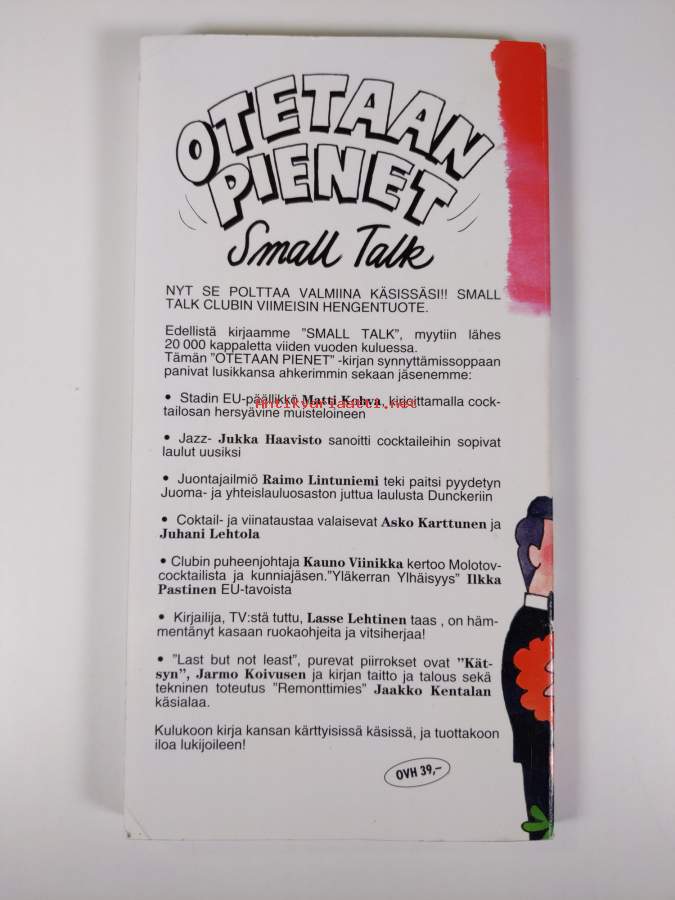 OTETAAN
PIENET
Small Talk
NYT SE POLTTAA VALMIINA KÄSISSÄSI!! SMALL
TALK CLUBIN VIIMEISIN HENGENTUOTE.
Edellistä kirjaamme ”SMALL TALK”, myytiin lähes
20 000 kappaletta viiden vuoden kuluessa.
Tämän ”OTETAAN PIENET” -kirjan synnyttämissoppaan
panivat lusikkansa ahkerimmin sekaan jäsenemme:
• Stadin EU-päällikkö Matti Kahva, kirjoittamalla cock-
tailosan hersyävine muisteloineen
Antikvariaatti.net
• Jazz- Jukka Haavisto sanoitti cocktaileihin sopivat
laulut uusiksi
• Juontajailmiö Raimo Lintuniemi teki paitsi pyydetyn
Juoma- ja yhteislauluosaston juttua laulusta Dunckeriin
• Coktail- ja viinataustaa valaisevat Asko Karttunen ja
Juhani Lehtola
• Clubin puheenjohtaja Kauno Viinikka kertoo Molotov-
cocktailista ja kunniajäsen.”Yläkerran Ylhäisyys” Ilkka
Pastinen EU-tavoista
• Kirjailija, TV:stä tuttu, Lasse Lehtinen taas , on häm-
mentänyt kasaan ruokaohjeita ja vitsiherjaa!
• ”Last but not least”, purevat piirrokset ovat ”Kät-
syn”, Jarmo Koivusen ja kirjan taitto ja talous sekä
tekninen toteutus ”Remonttimies” Jaakko Kentalan
käsialaa.
Kulukoon kirja kansan kärttyisissä käsissä, ja tuottakoon
iloa lukijoileen!
OVH 39,–